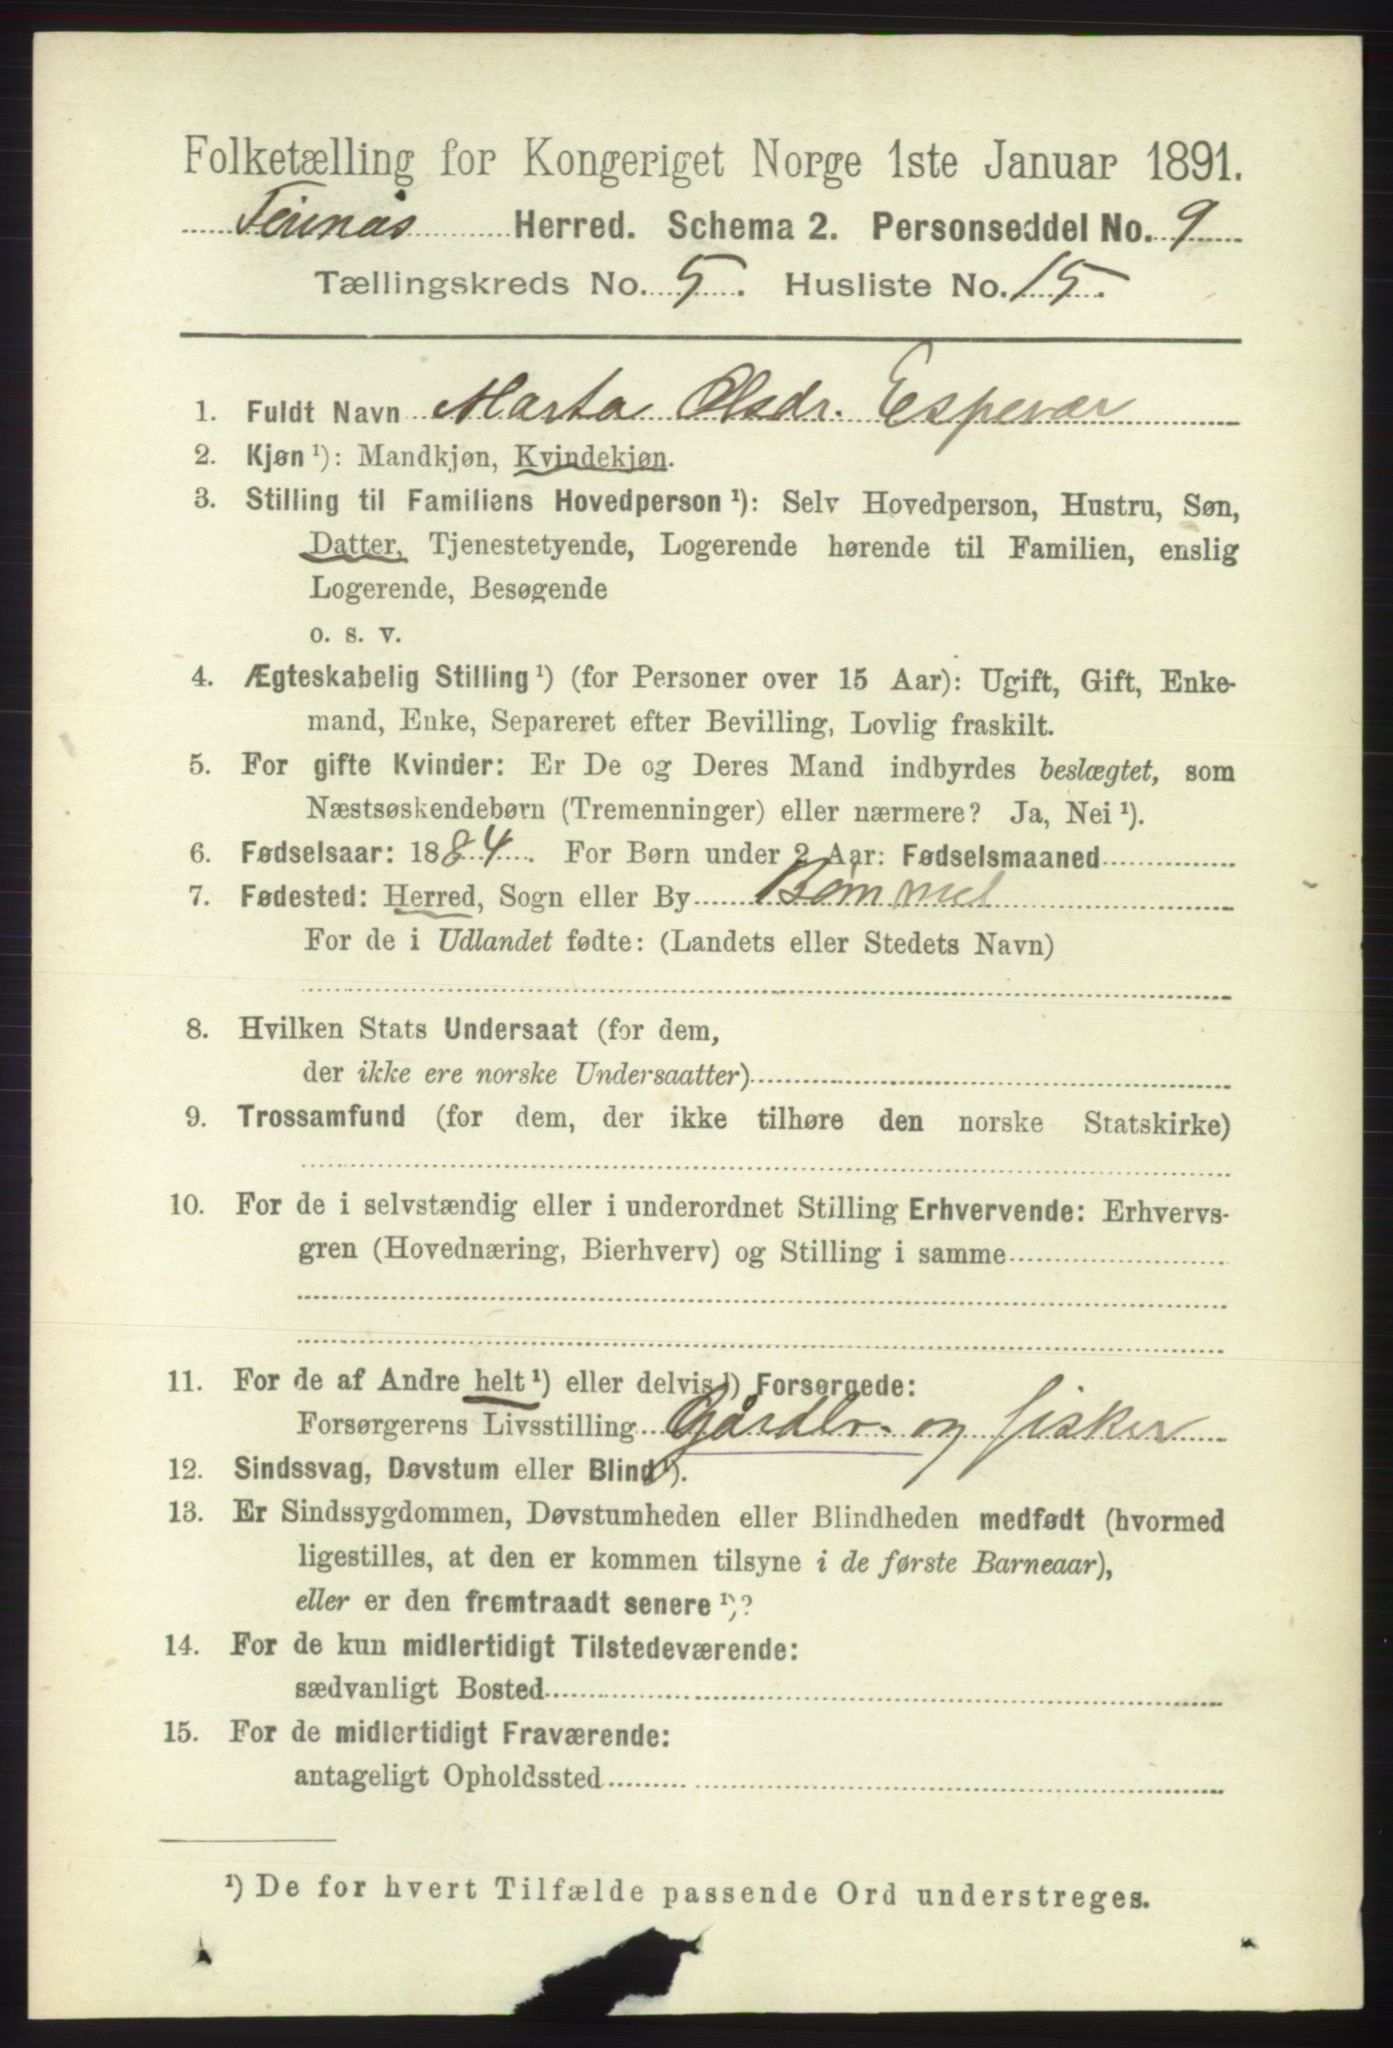 Folketælling for Kongeriget Norge 1ste Januar 1891.
Herred. Schema 2. Personseddel No. 9
Tællingskreds No. 5. Husliste No. 15.
1. Fuldt Navn Marta Olsdr. Espevær
2. Kjøn ¹): Mandkjøn, Kvindekjøn.
3. Stilling til Familiens Hovedperson ¹): Selv Hovedperson, Hustru, Søn,
Datter, Tjenestetyende, Logerende hørende til Familien, enslig
Logerende, Besøgende
o. s. v.
4. Ægteskabelig Stilling ¹) (for Personer over 15 Aar): Ugift, Gift, Enke-
mand, Enke, Separeret efter Bevilling, Lovlig fraskilt.
5. For gifte Kvinder: Er De og Deres Mand indbyrdes beslægtet, som
Næstsøskendebørn (Tremenninger) eller nærmere? Ja, Nei ¹).
6. Fødselsaar: 1884. For Børn under 2 Aar: Fødselsmaaned
7. Fødested: Herred, Sogn eller By Bømmel
For de i Udlandet fødte: (Landets eller Stedets Navn)
8. Hvilken Stats Undersaat (for dem,
der ikke ere norske Undersaatter)
9. Trossamfund (for dem, der ikke tilhøre den norske Statskirke)
10. For de i selvstændig eller i underordnet Stilling Erhvervende: Erhvervs-
gren (Hovednæring, Bierhverv) og Stilling i samme
11. For de af Andre helt ¹) eller delvis ¹) Forsørgede:
Forsørgerens Livsstilling Gårdbr. og fisker
12. Sindssvag, Døvstum eller Blind ¹).
13. Er Sindssygdommen, Døvstumheden eller Blindheden medfødt (hvormed
ligestilles, at den er kommen tilsyne i de første Barneaar),
eller er den fremtraadt senere ¹)?
14. For de kun midlertidigt Tilstedeværende:
sædvanligt Bosted
15. For de midlertidigt Fraværende:
antageligt Opholdssted
¹) De for hvert Tilfælde passende Ord understreges.